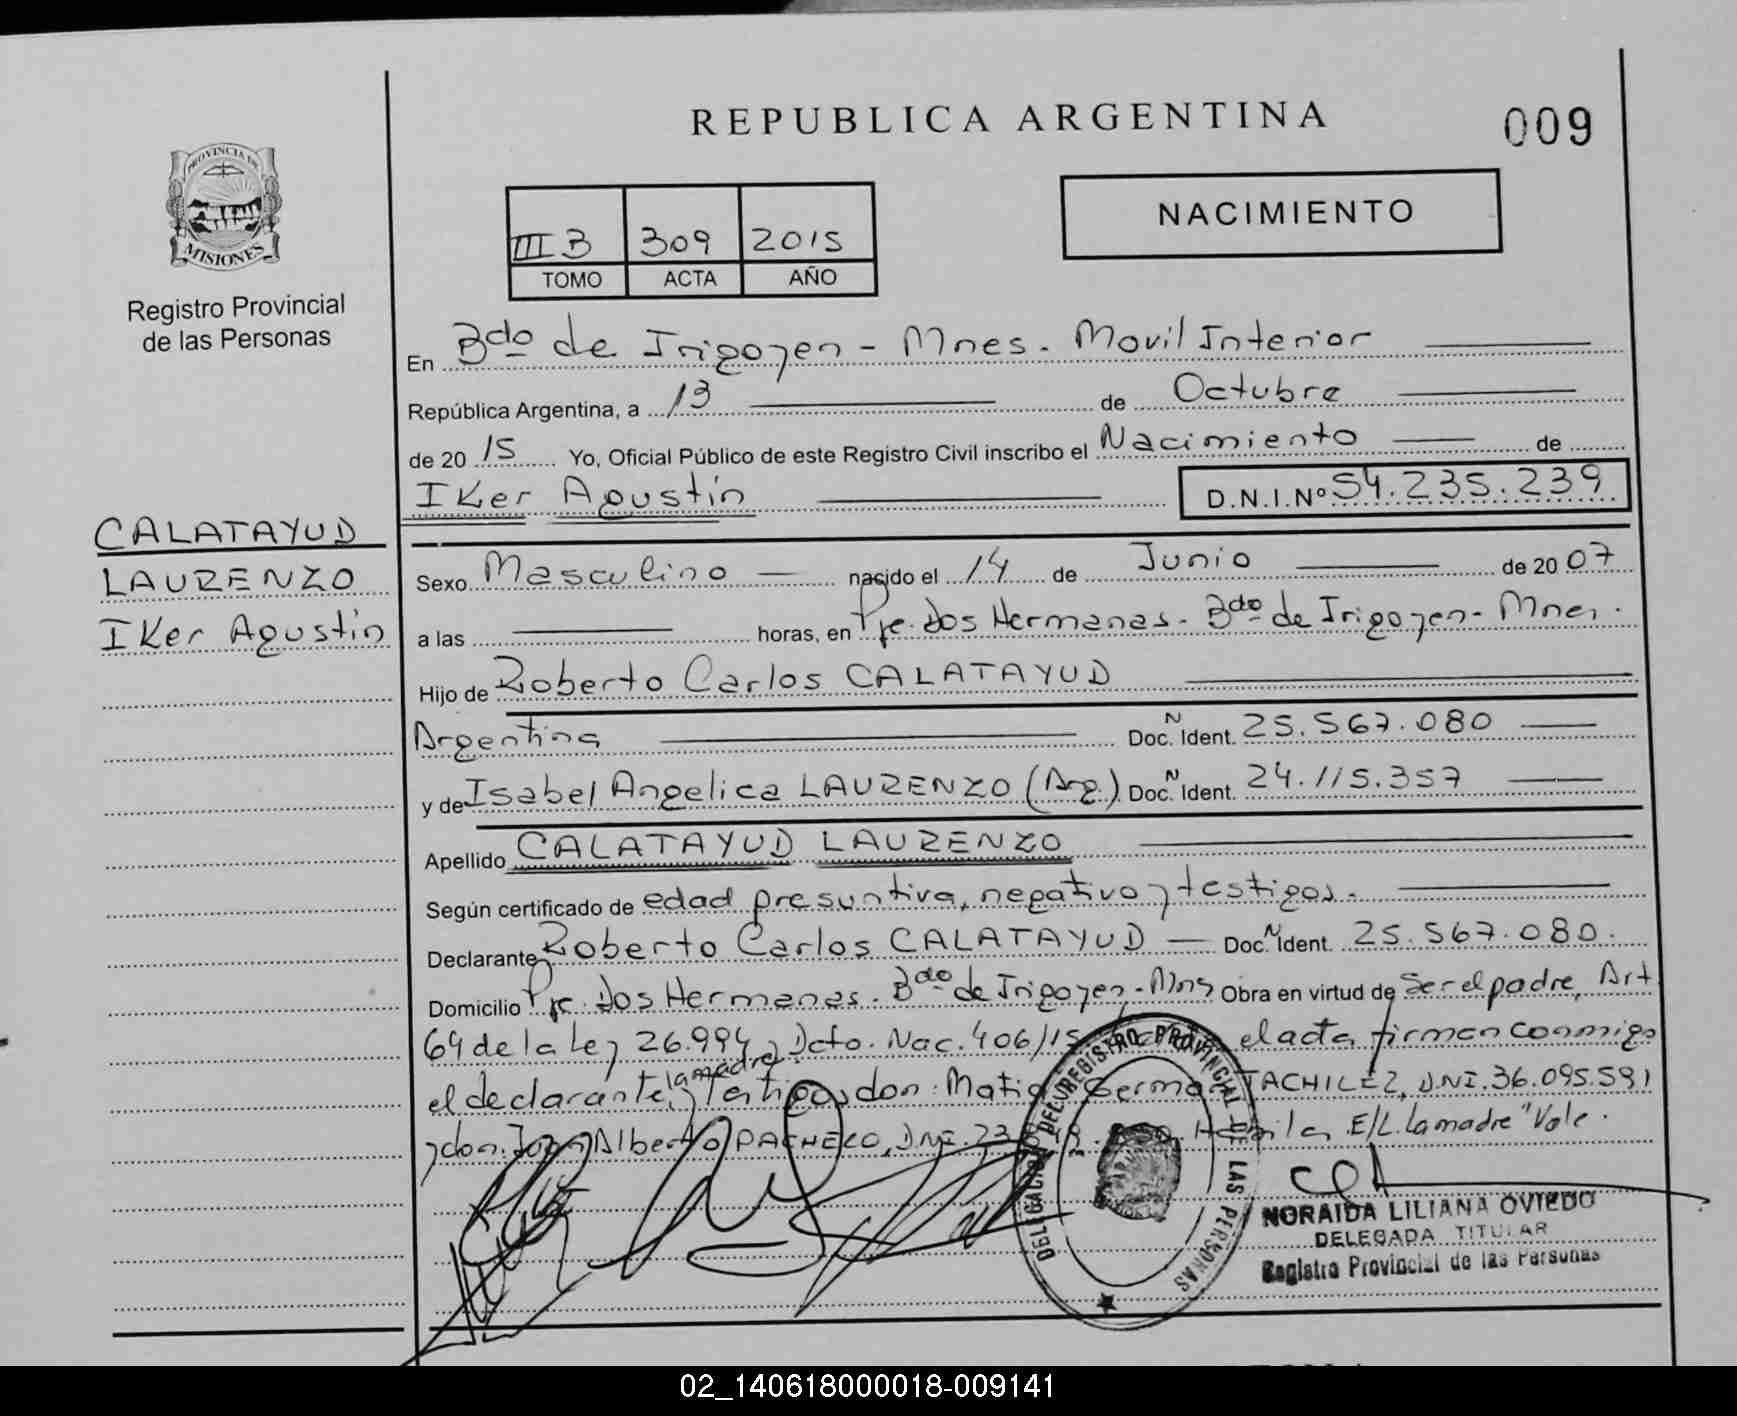 REPUBLICA ARGENTINA
009
PROVINCIA DE
MISIONES
Registro Provincial
de las Personas
III B 309 2015
TOMO ACTA AÑO
NACIMIENTO
En Bdo de Irigoyen - Mnes. Movil Interior
República Argentina, a 13 de Octubre
de 20 15 Yo, Oficial Público de este Registro Civil inscribo el Nacimiento de
IKer Agustín D.N.I.Nº 54.235.239
CALATAYUD
LAURENZO
IKer Agustín
Sexo Masculino nacido el 14 de Junio de 20 07
a las horas, en Pje. Dos Hermanas - Bdo de Irigoyen - Mnes.
Hijo de Roberto Carlos CALATAYUD
Argentina Doc. N Ident. 25.567.080
y de Isabel Angelica LAURENZO (Arg.) Doc. N Ident. 24.115.357
Apellido CALATAYUD LAURENZO
Según certificado de edad presuntiva, negativo y testigos.
Declarante Roberto Carlos CALATAYUD Doc. N Ident. 25.567.080.
Domicilio Pje. Dos Hermanas. Bdo de Irigoyen - Mns Obra en virtud de Ser el padre, Art
64 de la Ley 26.994 y Dcto. Nac. 406/15 el acta firman conmigo
el declarante, la madre y testigos don: Matias German TACHILEZ, D.N.I. 36.095.591
y don: Juan Alberto PACHECO, D.N.I. 23 E/L. la madre "Vale.
DELEGACION DEL REGISTRO PROVINCIAL DE LAS PERSONAS
NORAIDA LILIANA OVIEDO
DELEGADA TITULAR
Registro Provincial de las Personas
02_140618000018-009141